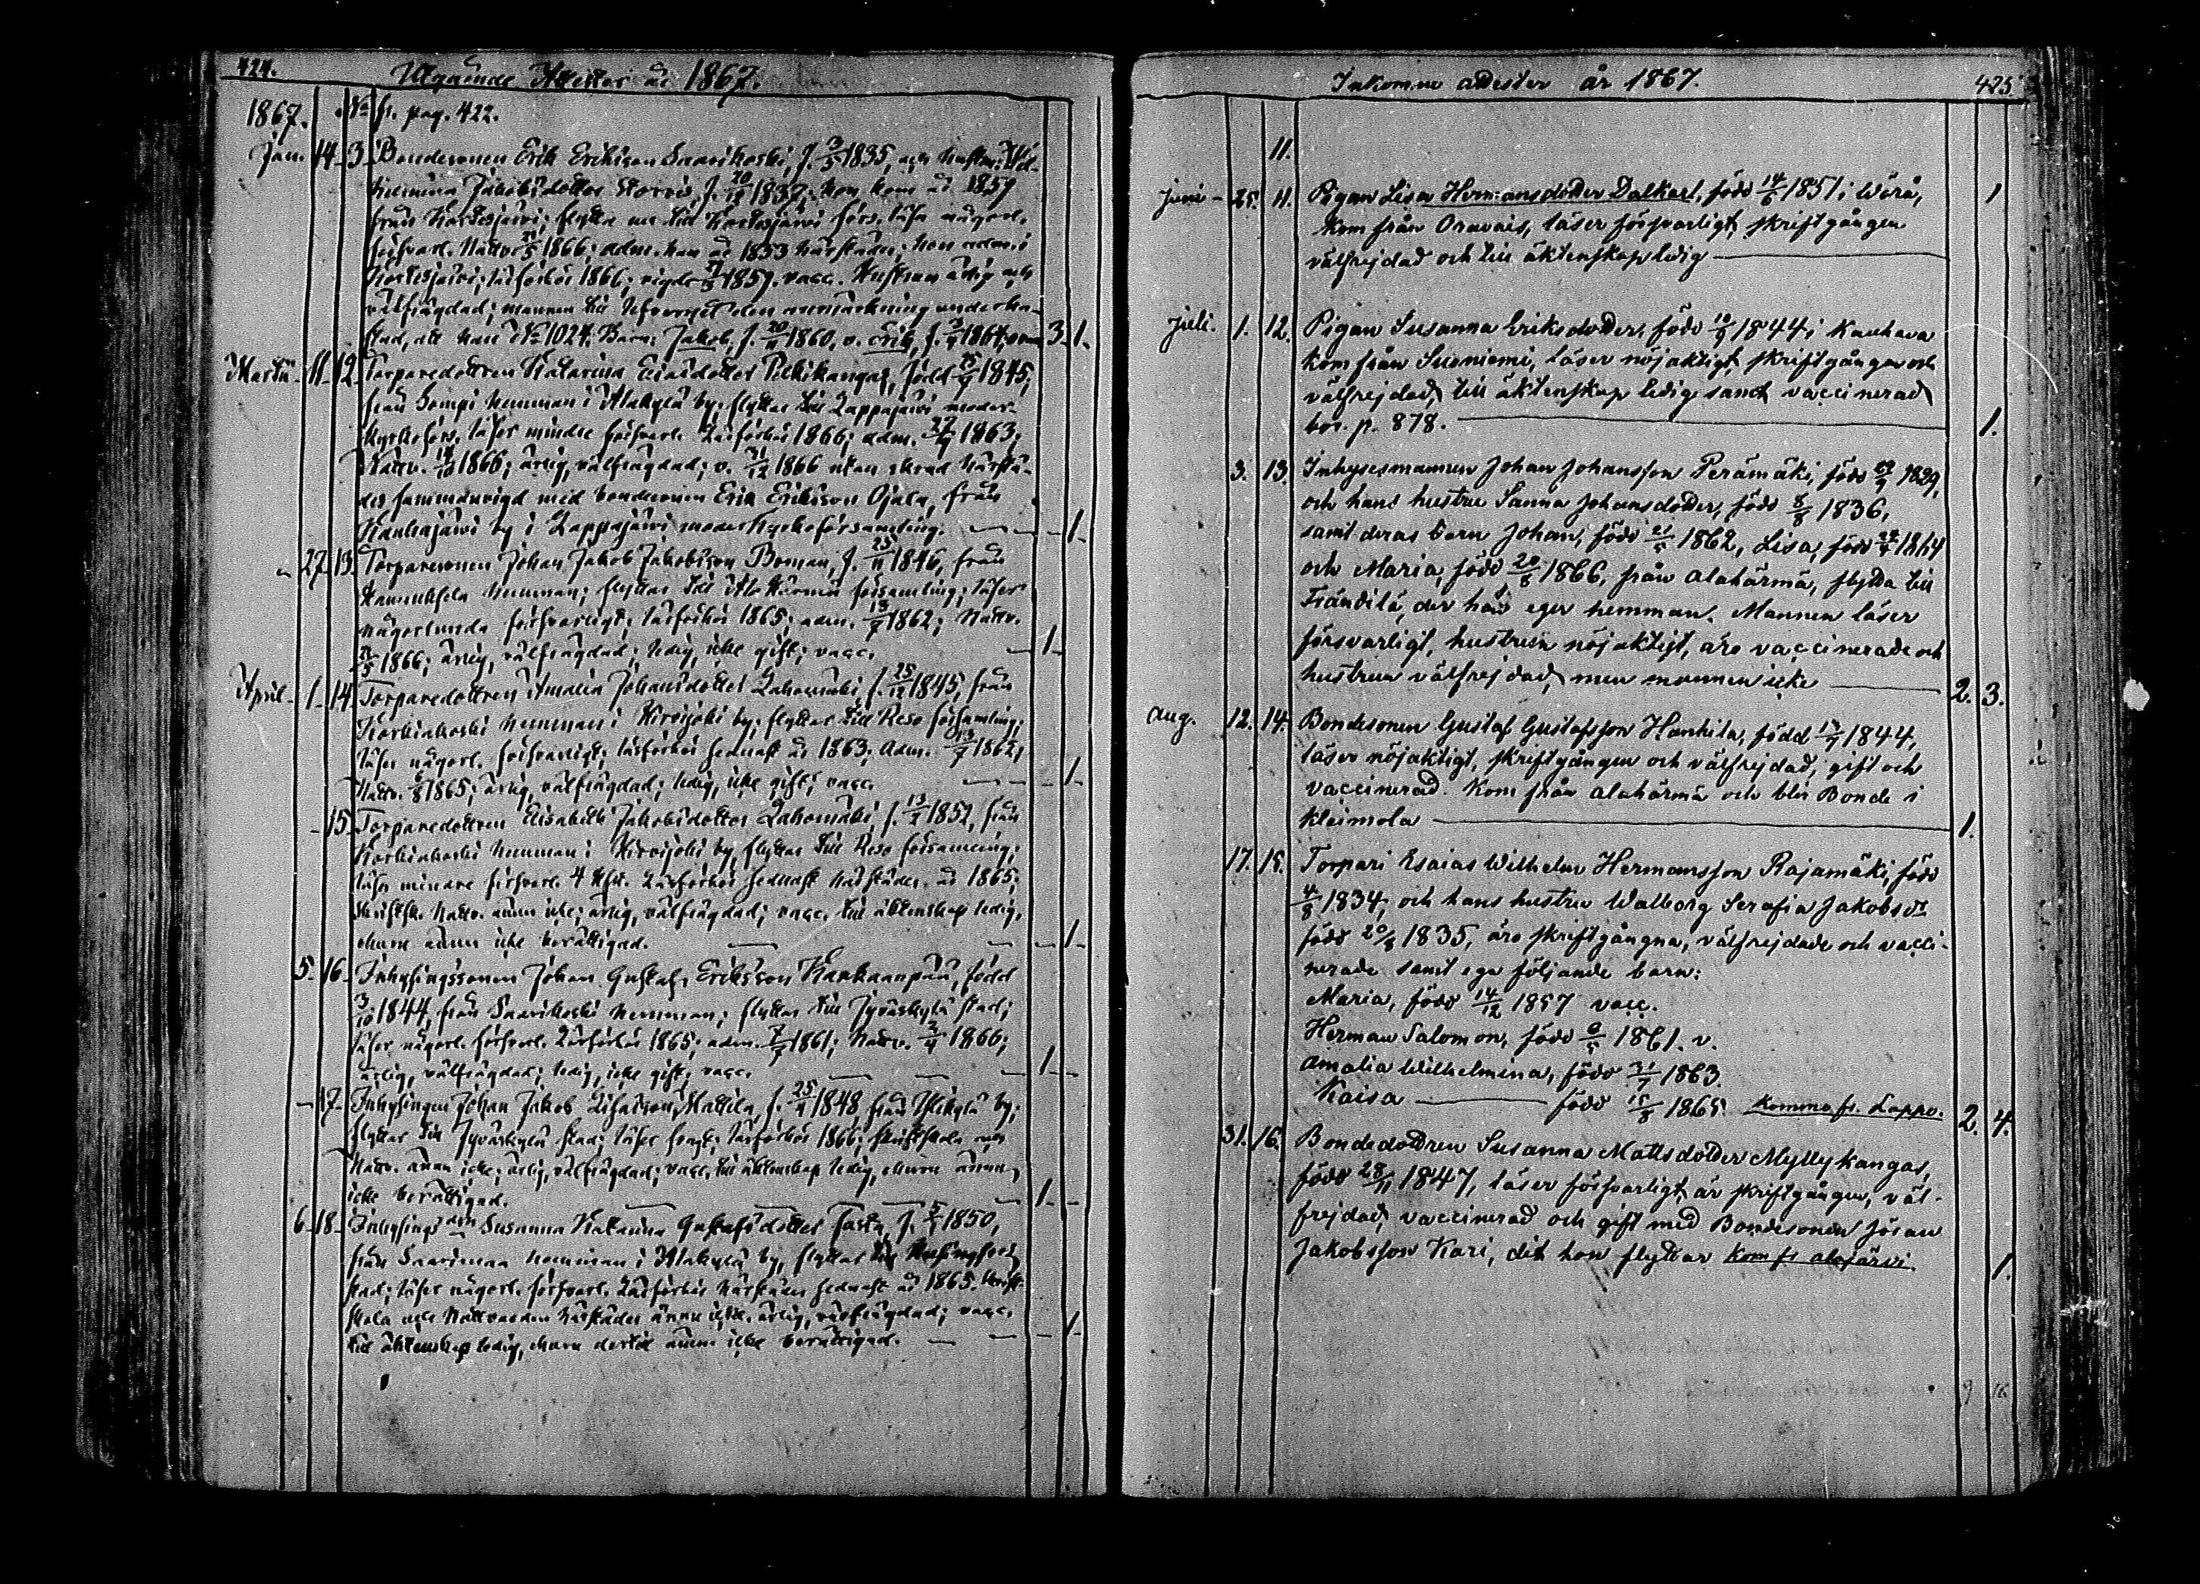 424.
Utgående Attester år 1867.
1867. No fr. pag. 422.
Jan. 14. 3. Bondesonen Erik Eriksson Saarikoski, f. 3/5 1835, och hustru Wil-
helmina Jakobsdotter f. 20/12 1837; hon kom år 1857
från Kortesjärvi; flytta nu till Kortesjärvi förs. läsa någorl.
försvarl. Nattv. 1866; adm. han år 1853 härstädes; hon adm. i
Kortesjärvi; läsförhör 1866; vigde 1857. vacc. Hustrun ärlig och
välfrägdad; mannen till lefvernet den anmärkning underka-
stad, att han No 1024. Barn: Jakob, f. 20/11 1860, v. Erik, f. 1864; 3 1.
Martii 11. 12. Torparedottren Katarina dotter Pelkikangas, född 25/9 1845,
från Sompi hemman i Alakylä by, flyttar till Lappajärvi moder-
kyrkoförs. läser mindre försvarl. Läsförhör 1866; adm. 1863;
Nattv. 1866; ärlig, välfrägdad; v. 31/12 1866 utan härstä-
des sammanvigd med bondesonen Erik Eriksson Ojala, från
Kauhajärvi by i Lappajärvi moderkyrkoförsamling. 1.
27. 13. Torparesonen Johan Jakob Jakobsson Boman, f. 25/11 1846, från
hemman; flyttar till Ala Härmä församling; läser
någorlunda försvarligt; läsförhör 1865; adm. 13/7 1862; Nattv.
1866; ärlig, välfrägdad; ledig, icke gift; vacc. 1.
April 1. 14. Torparedottren Amalia Johansdotter Lahomäki, f. 25/12 1845, från
Korkiakoski hemman i Hirvijoki by, flyttar till Reso församling;
läser någorl. försvarligt; läsförhör sednast år 1863; adm. 13/7 1862;
Nattv. 6/8 1865; ärlig, välfrägdad; ledig, icke gift; vacc. 1.
15. Torparedottren Elisabeth Jakobsdotter Lahomäki, f. 13/2 1852, från
Korkiakoski hemman i Hirvijoki by, flyttar till Reso församling;
läser mindre försvarl. Läsförhör sednast härstädes år 1865;
Nattv. ännu icke; ärlig, välfrägdad; vacc. till äktenskap ledig,
ehuru ännu icke berättigad. 1.
5. 16. Inhysingssonen Johan Gustaf Eriksson Kankaanpää, född
3/10 1844, från Saarikoski hemman; flyttar till Jyväskylä stad;
läser någorl. försvarl. Läsförhör 1865; adm. 7/7 1861; Nattv. 2/4 1866;
ärlig, välfrägdad; ledig, icke gift, vacc. 1.
17. Inhysingen Johan Jakob Mattila, f. 25/4 1848, från Ylikylä by;
flyttar till Jyväskylä stad; läser läsförhör 1866; skriftskola och
Nattv. ännu icke; ärlig, välfrägdad; vacc. till äktenskap ledig, ehuru ännu
icke berättigad. 1.
6. 18. Inhysings Susanna Katarina Gustafsdotter f. 1850,
från Saarimaa hemman i Alakylä by, flyttar till Helsingfors
stad; läser någorl. försvarl. Läsförhör härstädes sednast år 1865. Skrift-
skola och Nattvarden härstädes ännu icke. ärlig, välfrägdad; vacc.
till äktenskap ledig, ehuru dertill ännu icke berättigad. 1.
Inkomne attester år 1867. 425
11.
Juni 25. 11. Pigan Lisa Hermansdotter Dalkarl, född 14/6 1851 i Wörå, 1
kom från Oravais, läser försvarligt, skriftgången
välfrejdad och till äktenskap ledig
Juli. 1. 12. Pigan Susanna Eriksdotter, född 10/9 1844 i Kauhava
kom från läser nöjaktigt, skriftgången och
välfrejdad, till äktenskap ledig samt vaccinerad
bor. p. 878. 1.
3. 13. Inhysesmannen Johan Johansson Perämäki, född 1829,
och hans hustru Sanna Johansdotter, född 8/8 1836,
samt deras barn Johan, född 1862, Lisa, född 1864
och Maria, född 20/8 1866, från Alahärmä, flytta till
der han eger hemman. Mannen läser
försvarligt, hustrun nöjaktigt, äro vaccinerade och
hustrun välfrejdad, men mannen icke 2. 3.
Aug. 12. 14. Bondesonen Gustaf Gustafsson Hanhila, född 1844,
läser nöjaktigt, skriftgången och välfrejdad, gift och
vaccinerad. Kom från Alahärmä och blir Bonde i
Kleimola 1.
17. 15. Torpari Esaias Wilhelm Hermansson Rajamäki, född
4/8 1834, och hans hustru Walborg Serafia Jakobsdr
född 20/8 1835, äro skriftgångna, välfrejdade och vacci-
nerade samt ega följande barn:
Maria, född 14/12 1857 vacc.
Herman Salomon, född 1861. v.
Amalia Wilhelmina, född 31/7 1863.
Kaisa född 15/8 1865. Komma fr. Lappo. 2. 4.
31. 16. Bondedottren Susanna Mattsdotter Myllykangas,
född 28/11 1847, läser försvarligt, är skriftgången, väl-
frejdad, vaccinerad och gift med Bondesonen Jöran
Jakobsson Kari, dit hon flyttar. Kom fr. Alajärvi. 1.
9